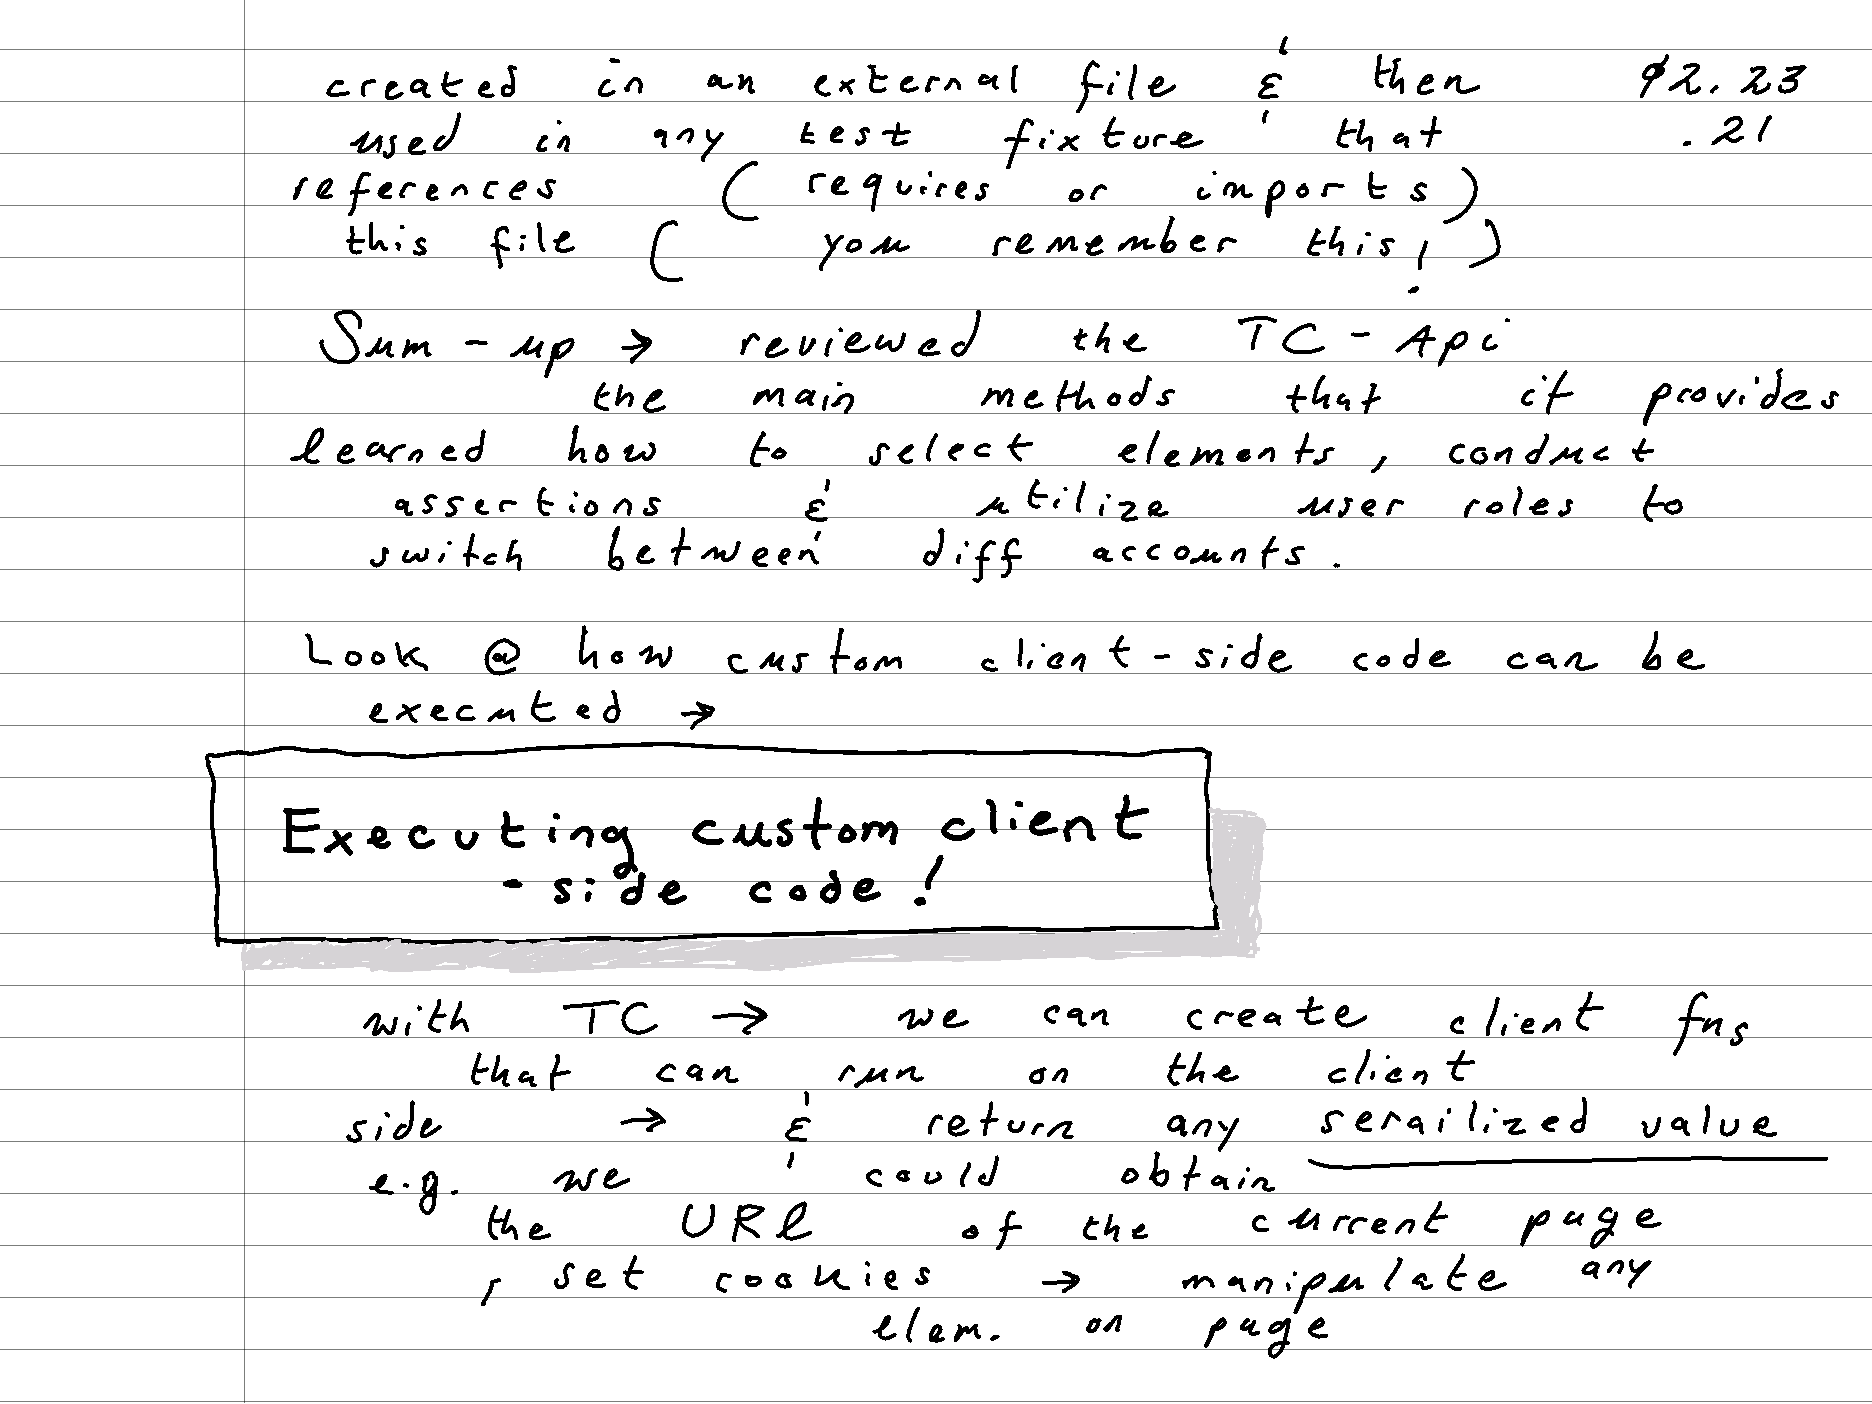 created in an external file & then $2.23
used in any test fixture that .21
references (requires or imports)
this file (you remember this!)
Sum-up → reviewed the TC-Api
the main methods that it provides
learned how to select elements, conduct
assertions & utilize user roles to
switch between diff accounts.
Look @ how custom client-side code can be
executed →
Executing custom client
- side code!
with TC → we can create client fns
that can run on the client
side → & return any serailized value
e.g. we could obtain
the URL of the current page
, set cookies → manipulate any
elem. on page